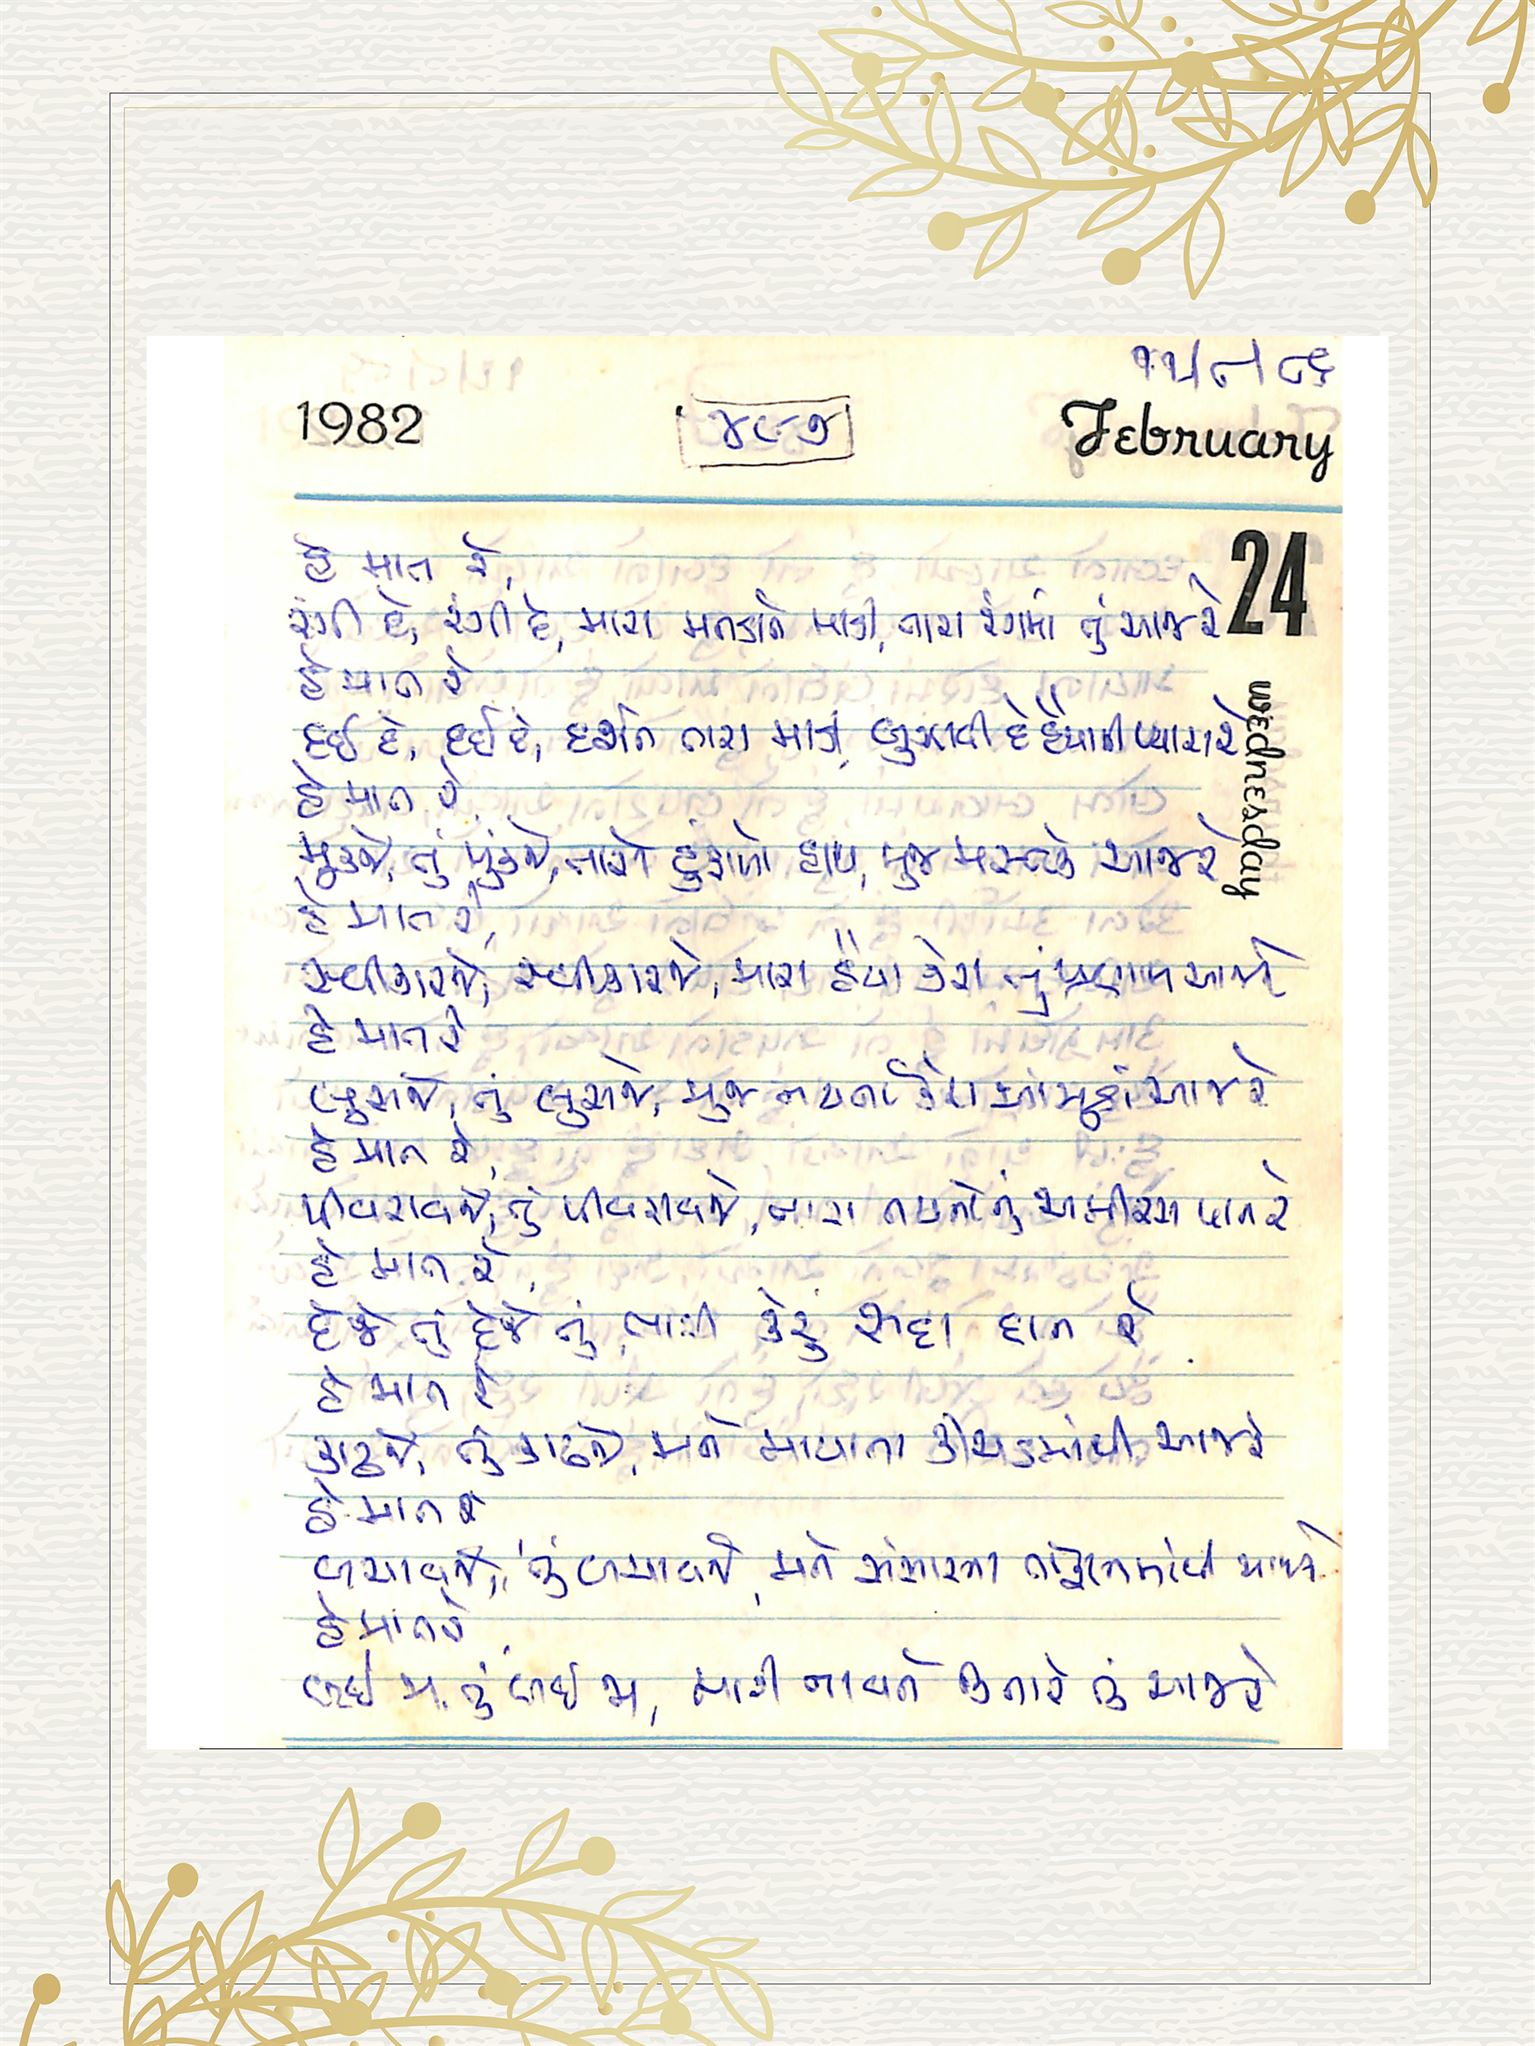 ૧૫/૮/૮૬
1982
૪૯૭
February
24
wednesday
હે માત રે,
રંગી દે, રંગી દે, મારા મનડાને માડી, તારા રંગમાં તું આજ રે
હે માત રે
દઈ દે, દઈ દે, દર્શન તારા માડી, બુઝાવી દે હૈયાની પ્યાસ રે
હે માત રે
મૂકજે, તું મુકજે, તારો હુંફાળો હાથ, મુજ મસ્તકે આજ રે
હે માત રે,
સ્વીકારજે, સ્વીકારજે, મારા હૈયા કેરા તું પ્રણામ આજ રે
હે માત રે
લુછજે, તું લુછજે, મુજ નયના કેરા આંસુડાં આજ રે
હે માત રે,
પીવરાવજે, તું પીવરાવજે, તારા નયનોનું અમીરસ પાન રે
હે માત રે,
દેજે તું દેજે તું, ભક્તિ કેરું સદા દાન રે
હે માત રે
કાઢજે, તું કાઢજે, મને માયાના કીચડમાંથી આજ રે
હે માત રે
બચાવજે, તું બચાવજે, મને સંસારના તોફાનમાંથી આજ રે
હે માત રે
લઈ જા તું લઈ જા, મારી નાવને કિનારે તું આજ રે